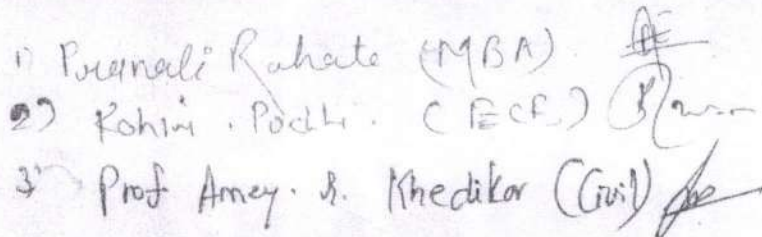 1) Pranali Rahate (MBA).
2) Rohini . Podhi . (
3) Prof Amey. S. Khedikar (Civil)